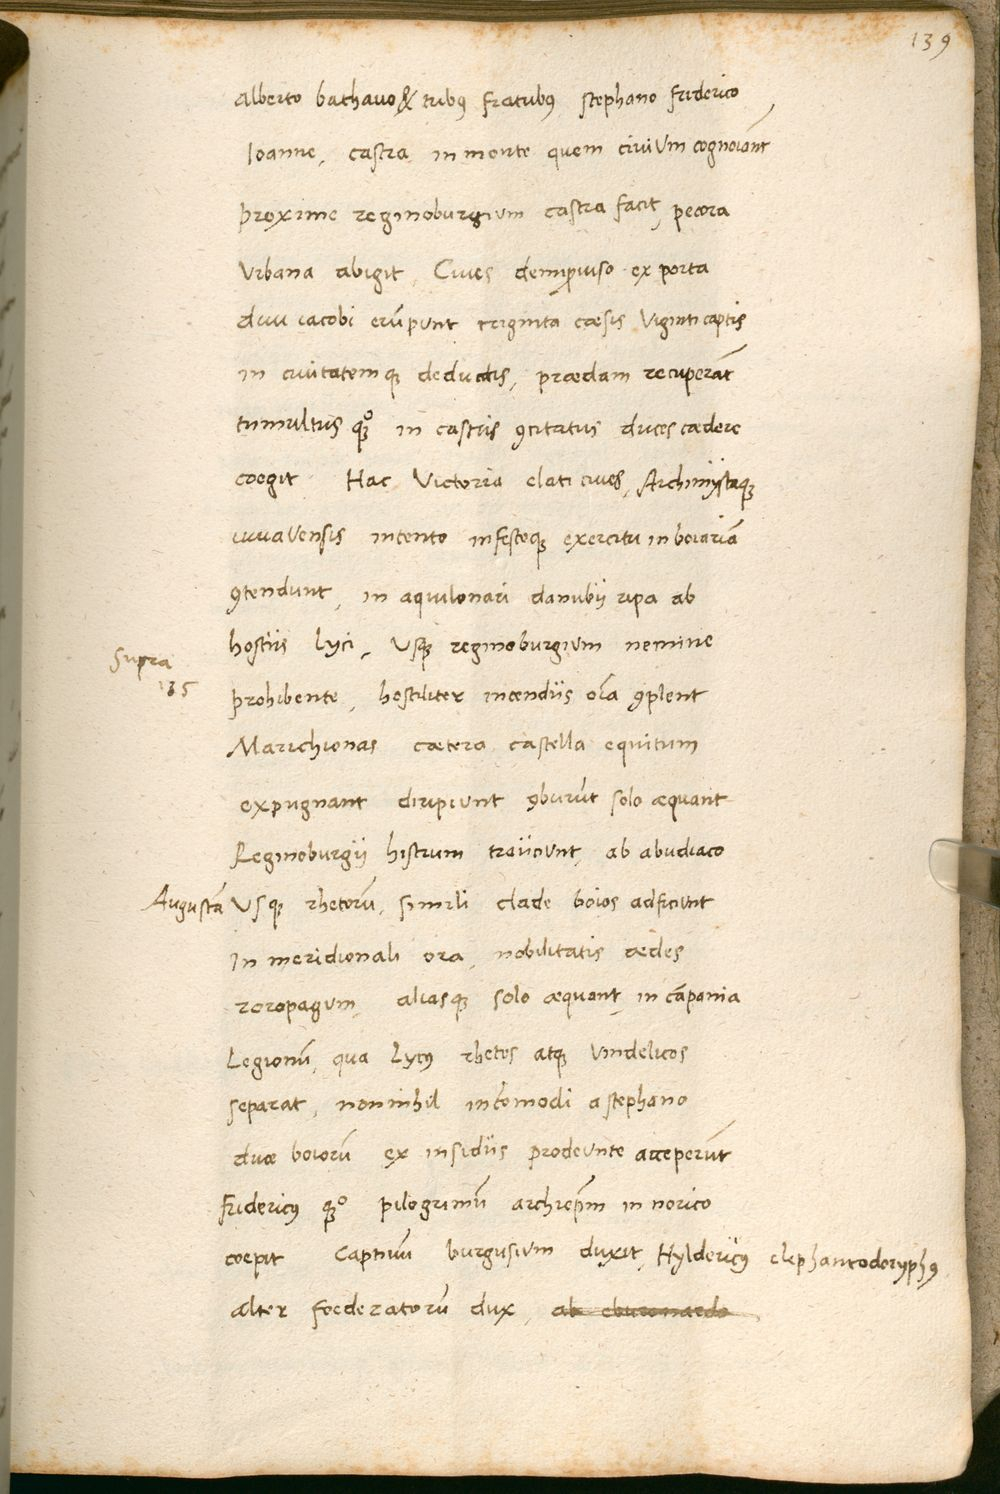 139
Alberto bathauo & tribꝰ fratribꝰ stephano friderico
Ioanne, castra in monte quem ciuiũm cognoĩant
proxime reginoburgium castra facit, pecora
Vrbana abigit, Ciues deimꝓuiso ex porta
diui iacobi erũpunt triginta cæsis Viginti captis
in ciuitatemqꝫ deductis, prædam recuperãt
tumultus qꝫº in castris ꝯcitatus duces cædere
coegit Hac Victoria elati ciues, Archimystaqꝫ
iuuaVensis intento infestoqꝫ exercitu in boiariã
ꝯtendunt, in aquilonari danubij ripa ab
hostiis lyci, Usqꝫ reginoburgium nemine
Supra
135
prohibente, hostiliter incendijs oĩa ꝯplent
Marichionas cætera castella equitum
expugnant diripiunt ꝯburũt solo æquant
Reginoburgij histrum traijciunt, ab abudiaco
Augustã Vsqꝫ rhetorũ, simili clade boios adficiunt
In meridionali ora, nobilitatis ædes
roropagum, aliasqꝫ solo æquant, in cãpania
Legionũ, qua lycꝰ rhetos atqꝫ Vindelicos
separat, nonnihil incõmodi a stephano
duce boiorũ ex insidijs prodeunte acceperũt
fridericꝰ qꝫº pilogrimũ archiep̃m in norico
coepit Captiuũ burgusium duxit, Hyldericꝰ elephantodoryphꝰ
alter foederatorũ dux, ab eburonardo